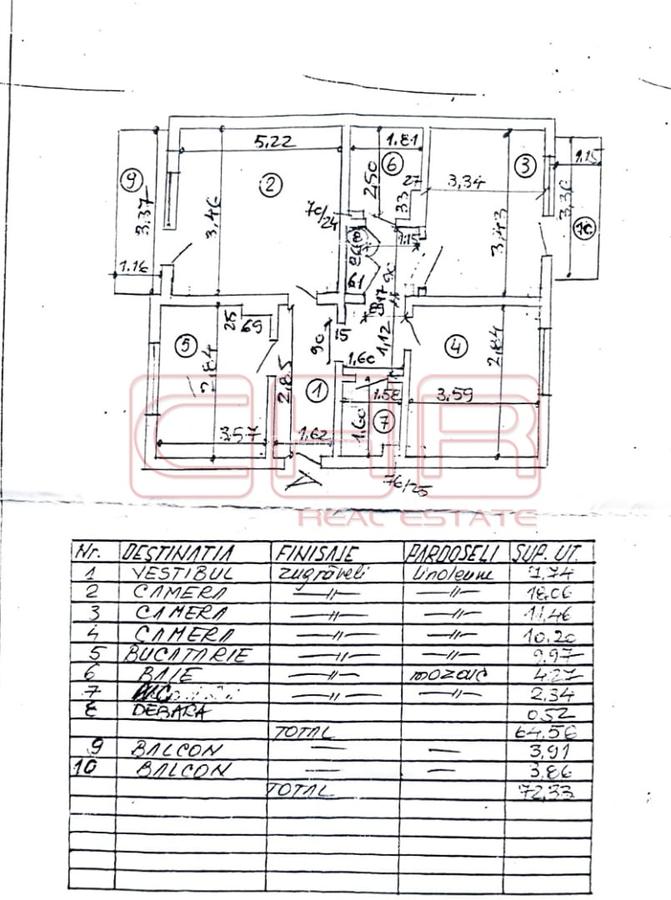 5,22
1.81
6
3
1.15
2
2,50
27
3,34
9
3,37
3,46
70/24
33
3,43
3,36
10
1.16
61
25
69
15
90
1,12
5
2,84
2,85
1,60
4
2,84
1
1.58
3.59
7
3.57
1.62
1,60
76/25
CHR
REAL ESTATE
Nr. DESTINATIA FINISAJE PARDOSELI SUP. UT.
1 VESTIBUL zugrăveli linoleum 7,74
2 CAMERA —〃— —〃— 18,06
3 CAMERA —〃— —〃— 11,46
4 CAMERA —〃— —〃— 10,20
5 BUCATARIE —〃— —〃— 9,97
6 BAIE —〃— mozaic 4,27
7 —〃— —〃— 2,34
8 DEBARA 0,52
TOTAL 64,56
9 BALCON — — 3,91
10 BALCON — — 3,86
TOTAL 72,33